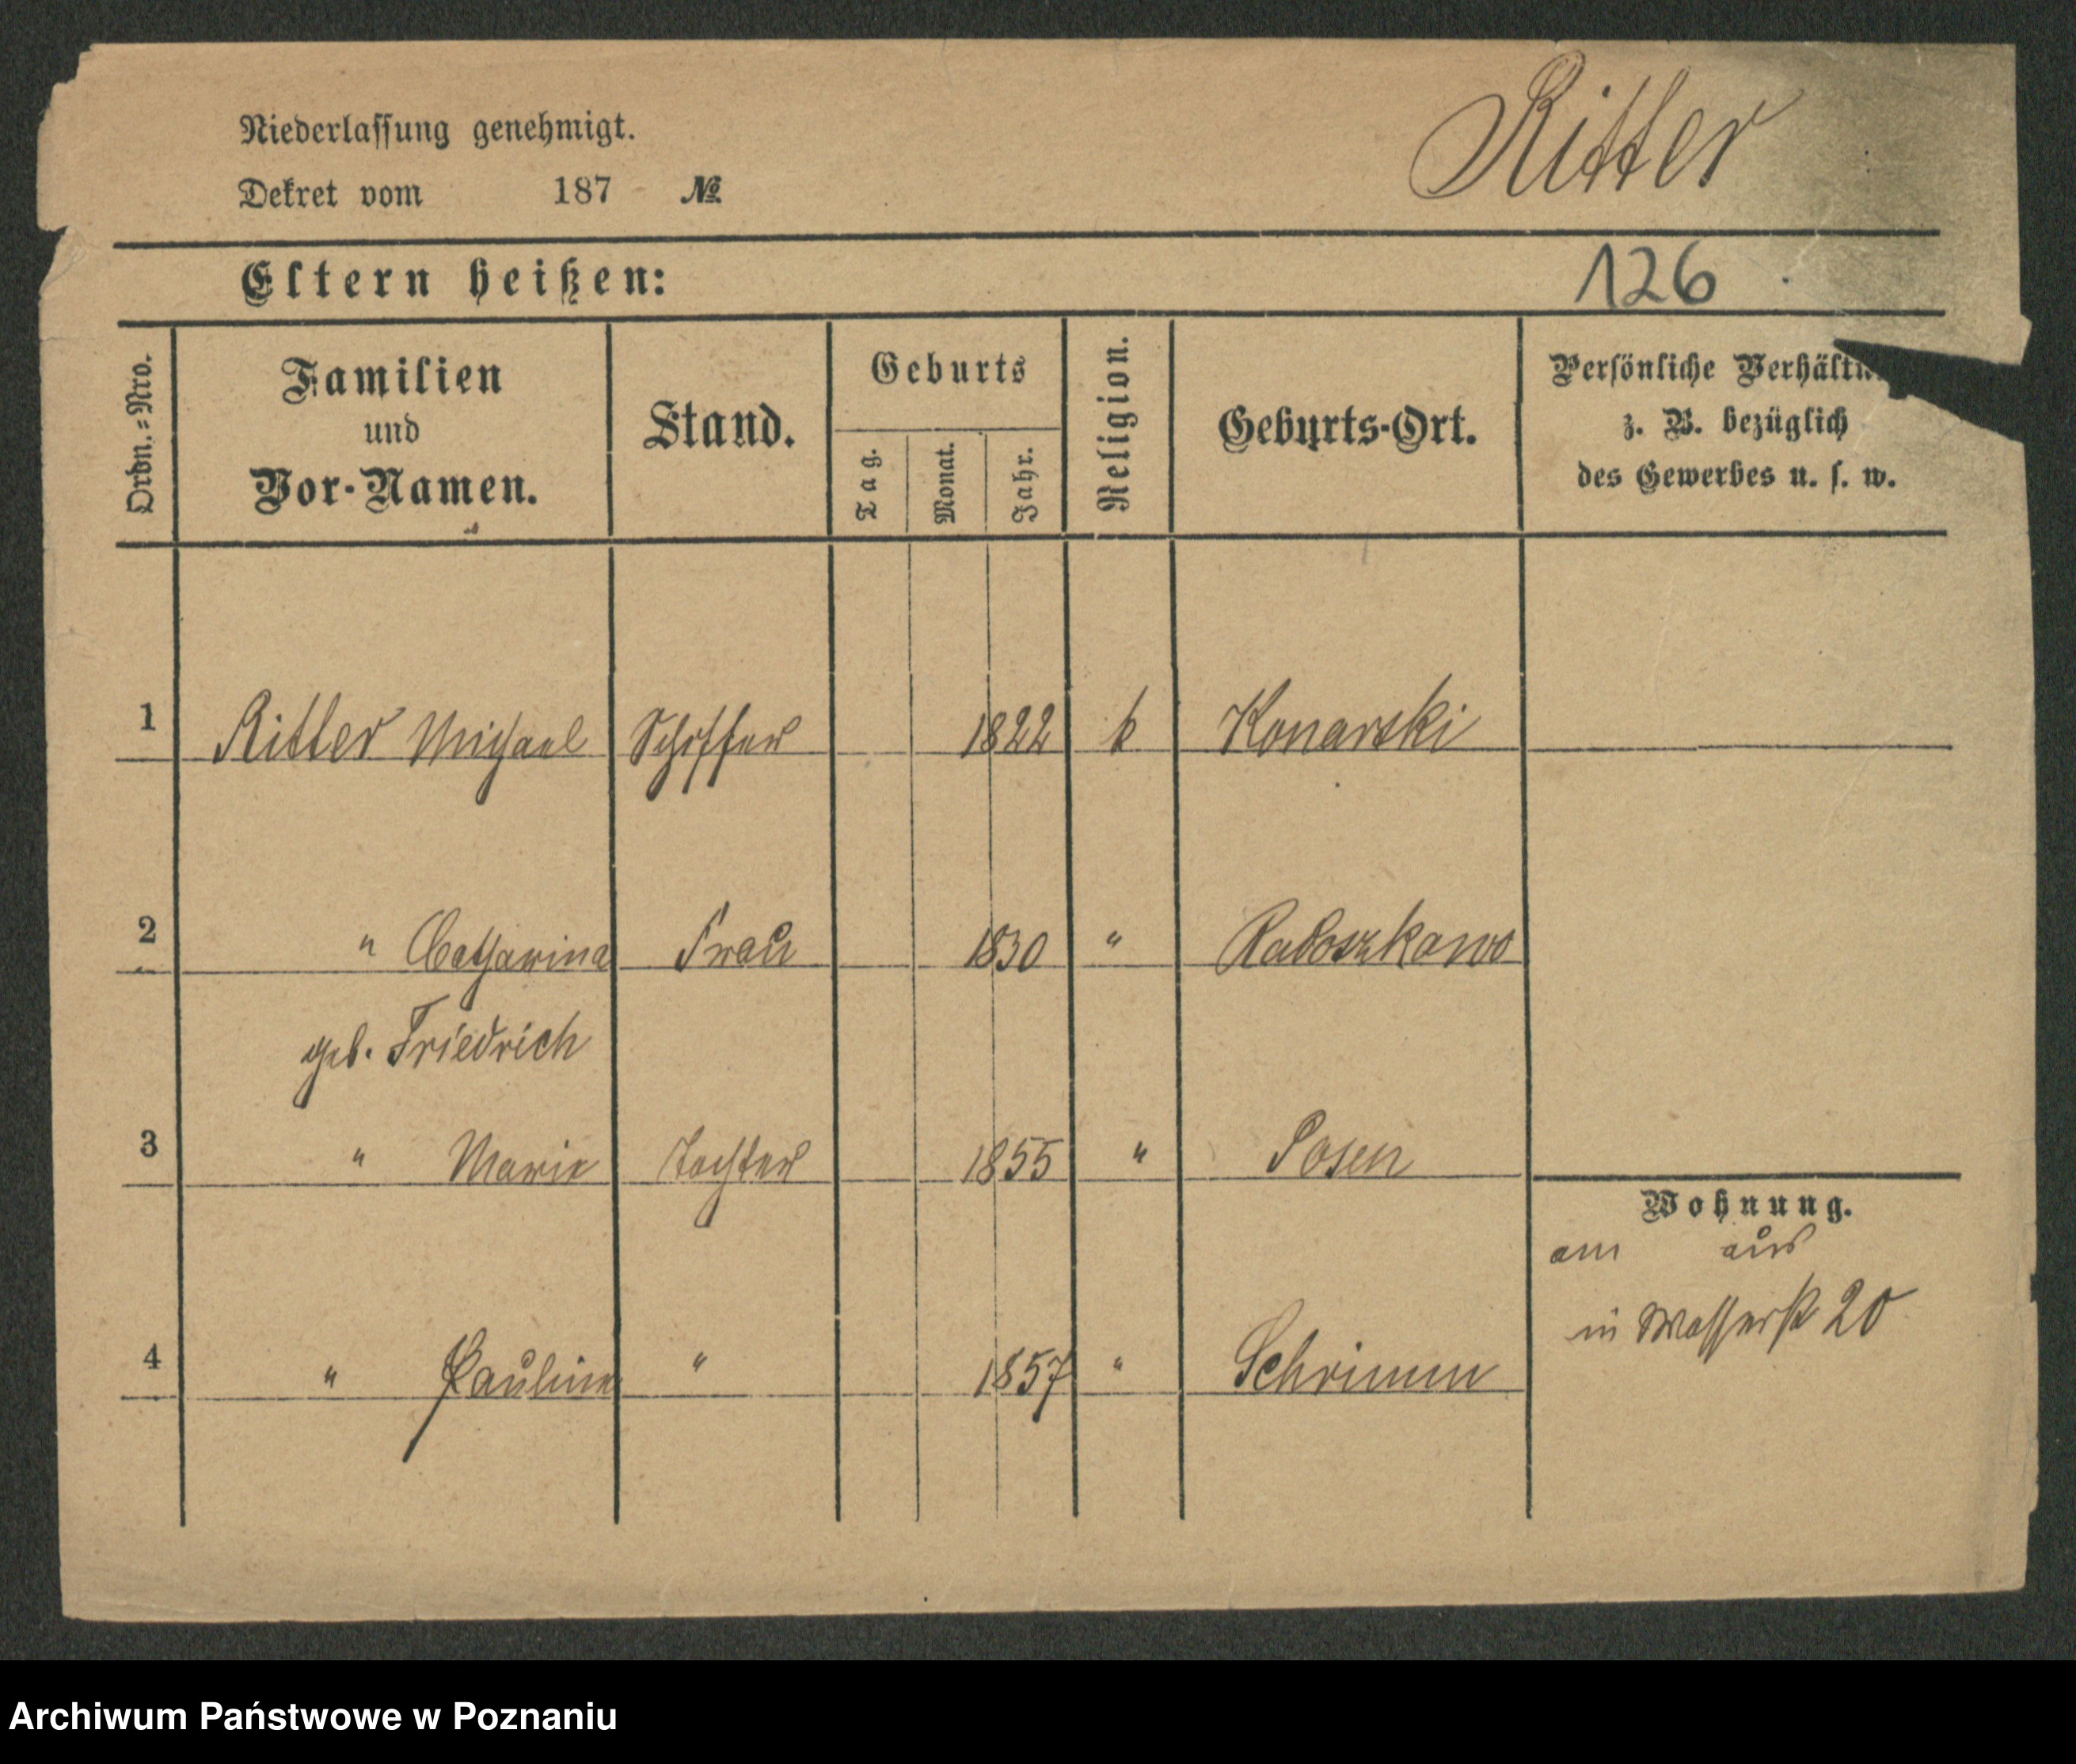 Niederlassung genehmigt.
Dekret vom 187 №
Ritter
Eltern heißen:
126
Ordn.=Nro.
Familien
und
Vor-Namen.
Stand.
Geburts
Tag.
Monat.
Jahr.
Religion.
Geburts-Ort.
Persönliche
z. B. bezüglich
des Gewerbes u. s. w.
1 Ritter Michael Schiffer 1822 k Konarski
2 " Catharina Frau 1830 " Radoszkowo
geb. Friedrich
3 " Marie Tochter 1855 " Posen
Wohnung.
am aus
in Wasserstr 20
4 " Pauline " 1857 " Schrimm
Archiwum Państwowe w Poznaniu